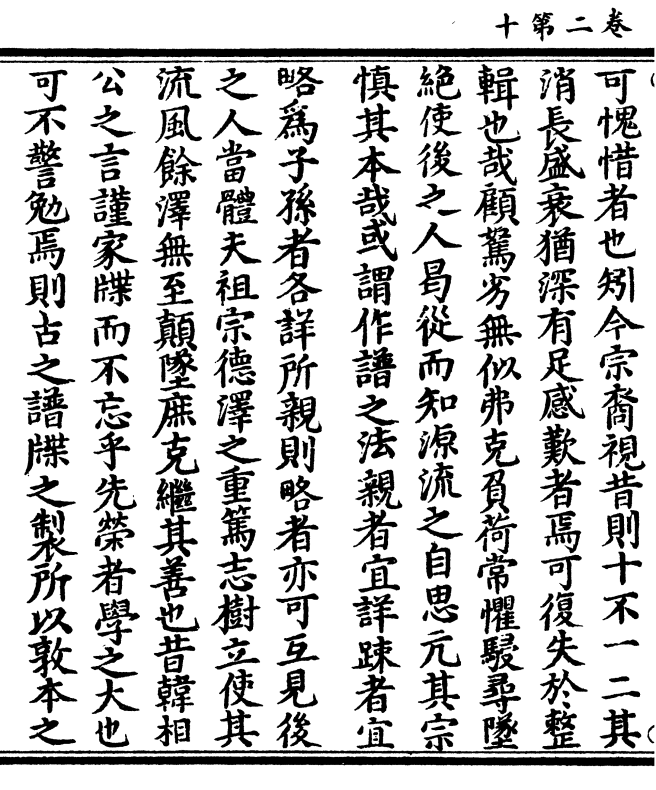 卷二第十
可愧惜者也矧今宗裔視昔則十不一二其
消長盛衰猶深有足感歎者焉可復失於整
輯也哉顧駑劣無似弗克負荷常懼駸尋墜
絶使後之人曷從而知源流之自思亢其宗
慎其本哉或謂作譜之法親者宜詳踈者宜
略爲子孫者各詳所親則略者亦可互見後
之人當體夫祖宗德澤之重篤志樹立使其
流風餘澤無至顛墜庶克繼其善也昔韓相
公之言謹家牒而不忘乎先榮者學之大也
可不警勉焉則古之譜牒之製所以敦本之